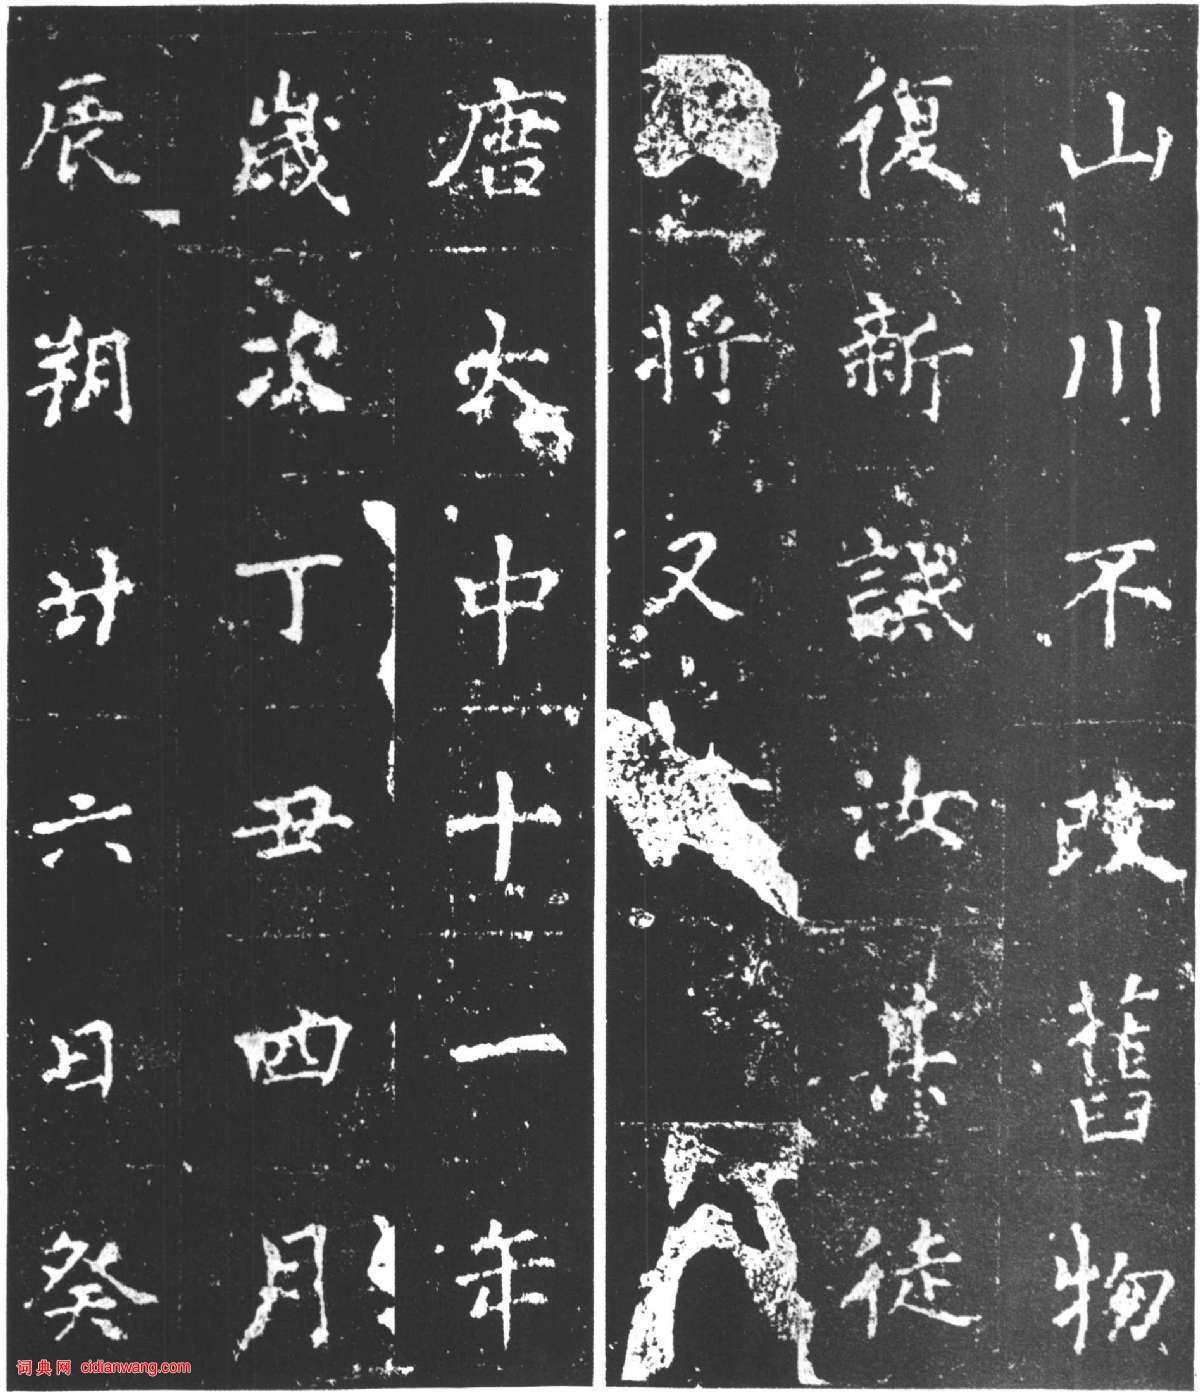 山川不改舊物
復新誤汝其徒
將又
唐大中十一年
歲次丁丑四月
辰朔廿六日癸
词典网 cidianwang.com